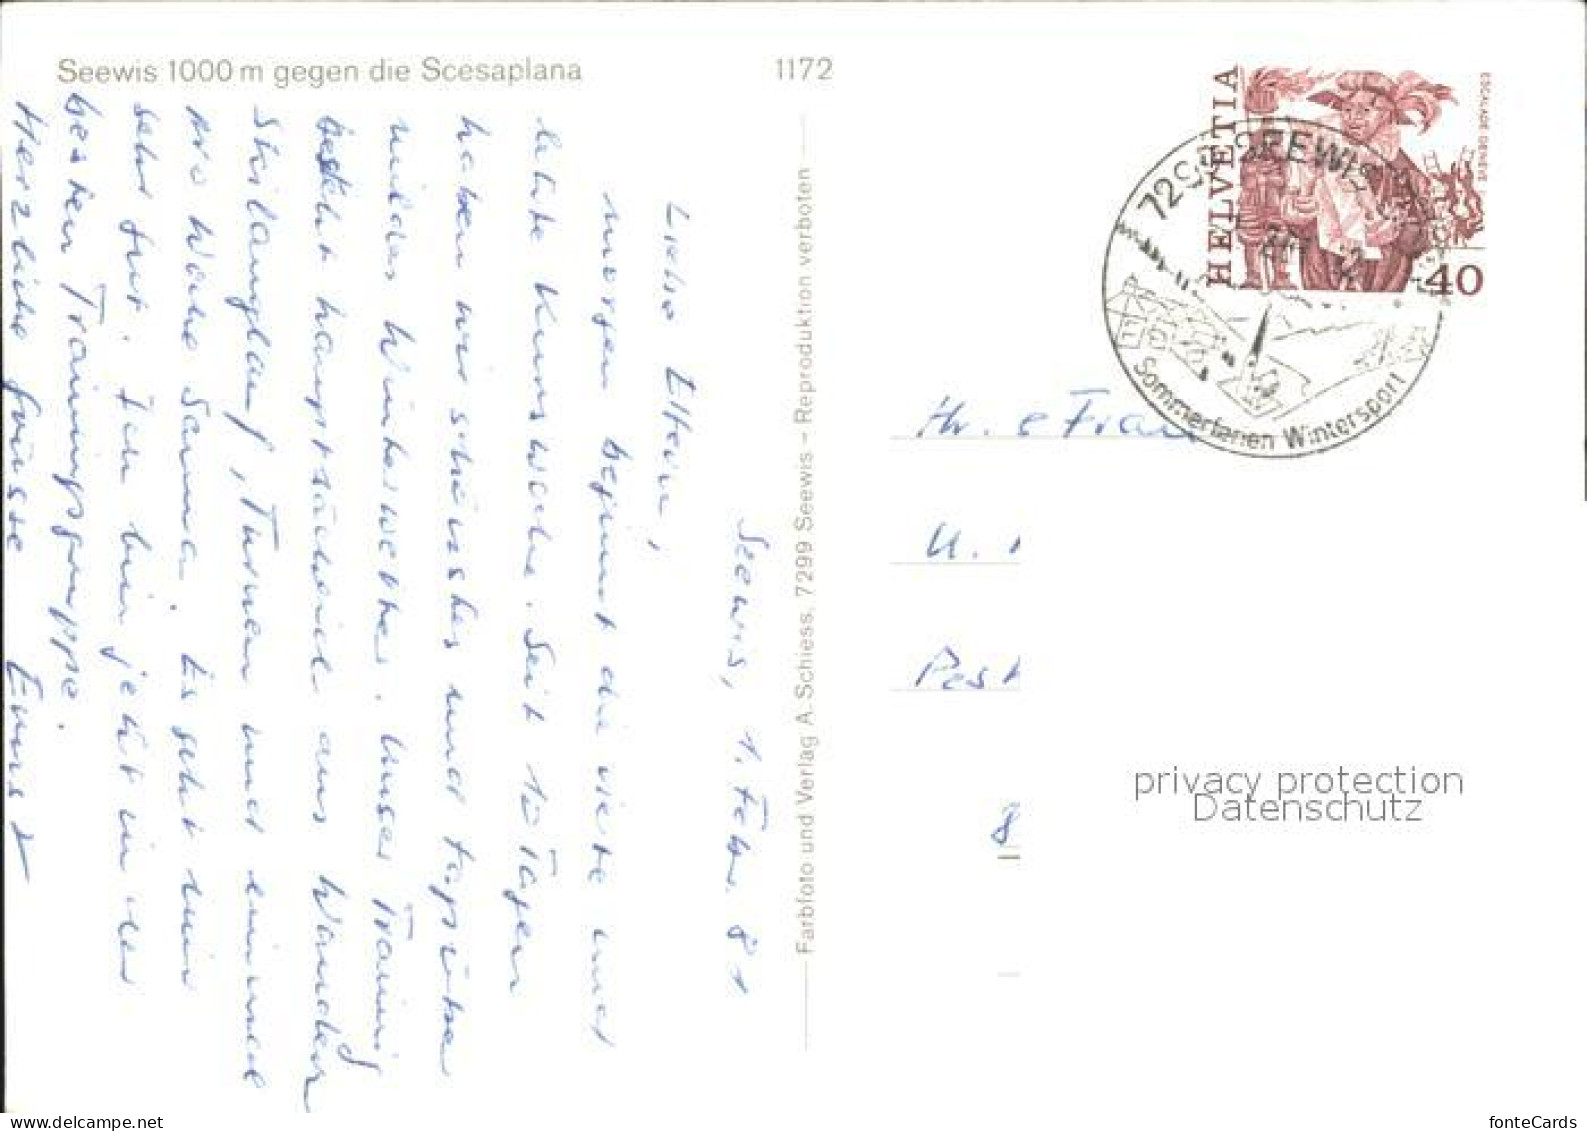 Seewis 1000 m gegen die Scesaplana
1172
Seewis, 1. Febr. 81
Liebe Eltern,
morgen beginnt die vierte und
letzte Kurswoche. Seit 10 Tagen
haben wir schönstes und
mildes Winterwetter. Unser Training
besteht hauptsächlich aus Wandern
Skilanglauf, Turnen und einmal
pro Woche Sauna. Es geht mir
sehr gut. Ich bin jetzt in der
besten Trainingsgruppe.
Herzliche Grüsse Ernst
Farbfoto und Verlag A. Schiess, 7299 Seewis – Reproduktion verboten
HELVETIA
ESCALADE GENÈVE
40
SEEWIS
Sommerferien Wintersport
Hr. & Frau
U.
Pest
8
privacy protection
Datenschutz
www.delcampe.net
fonteCards